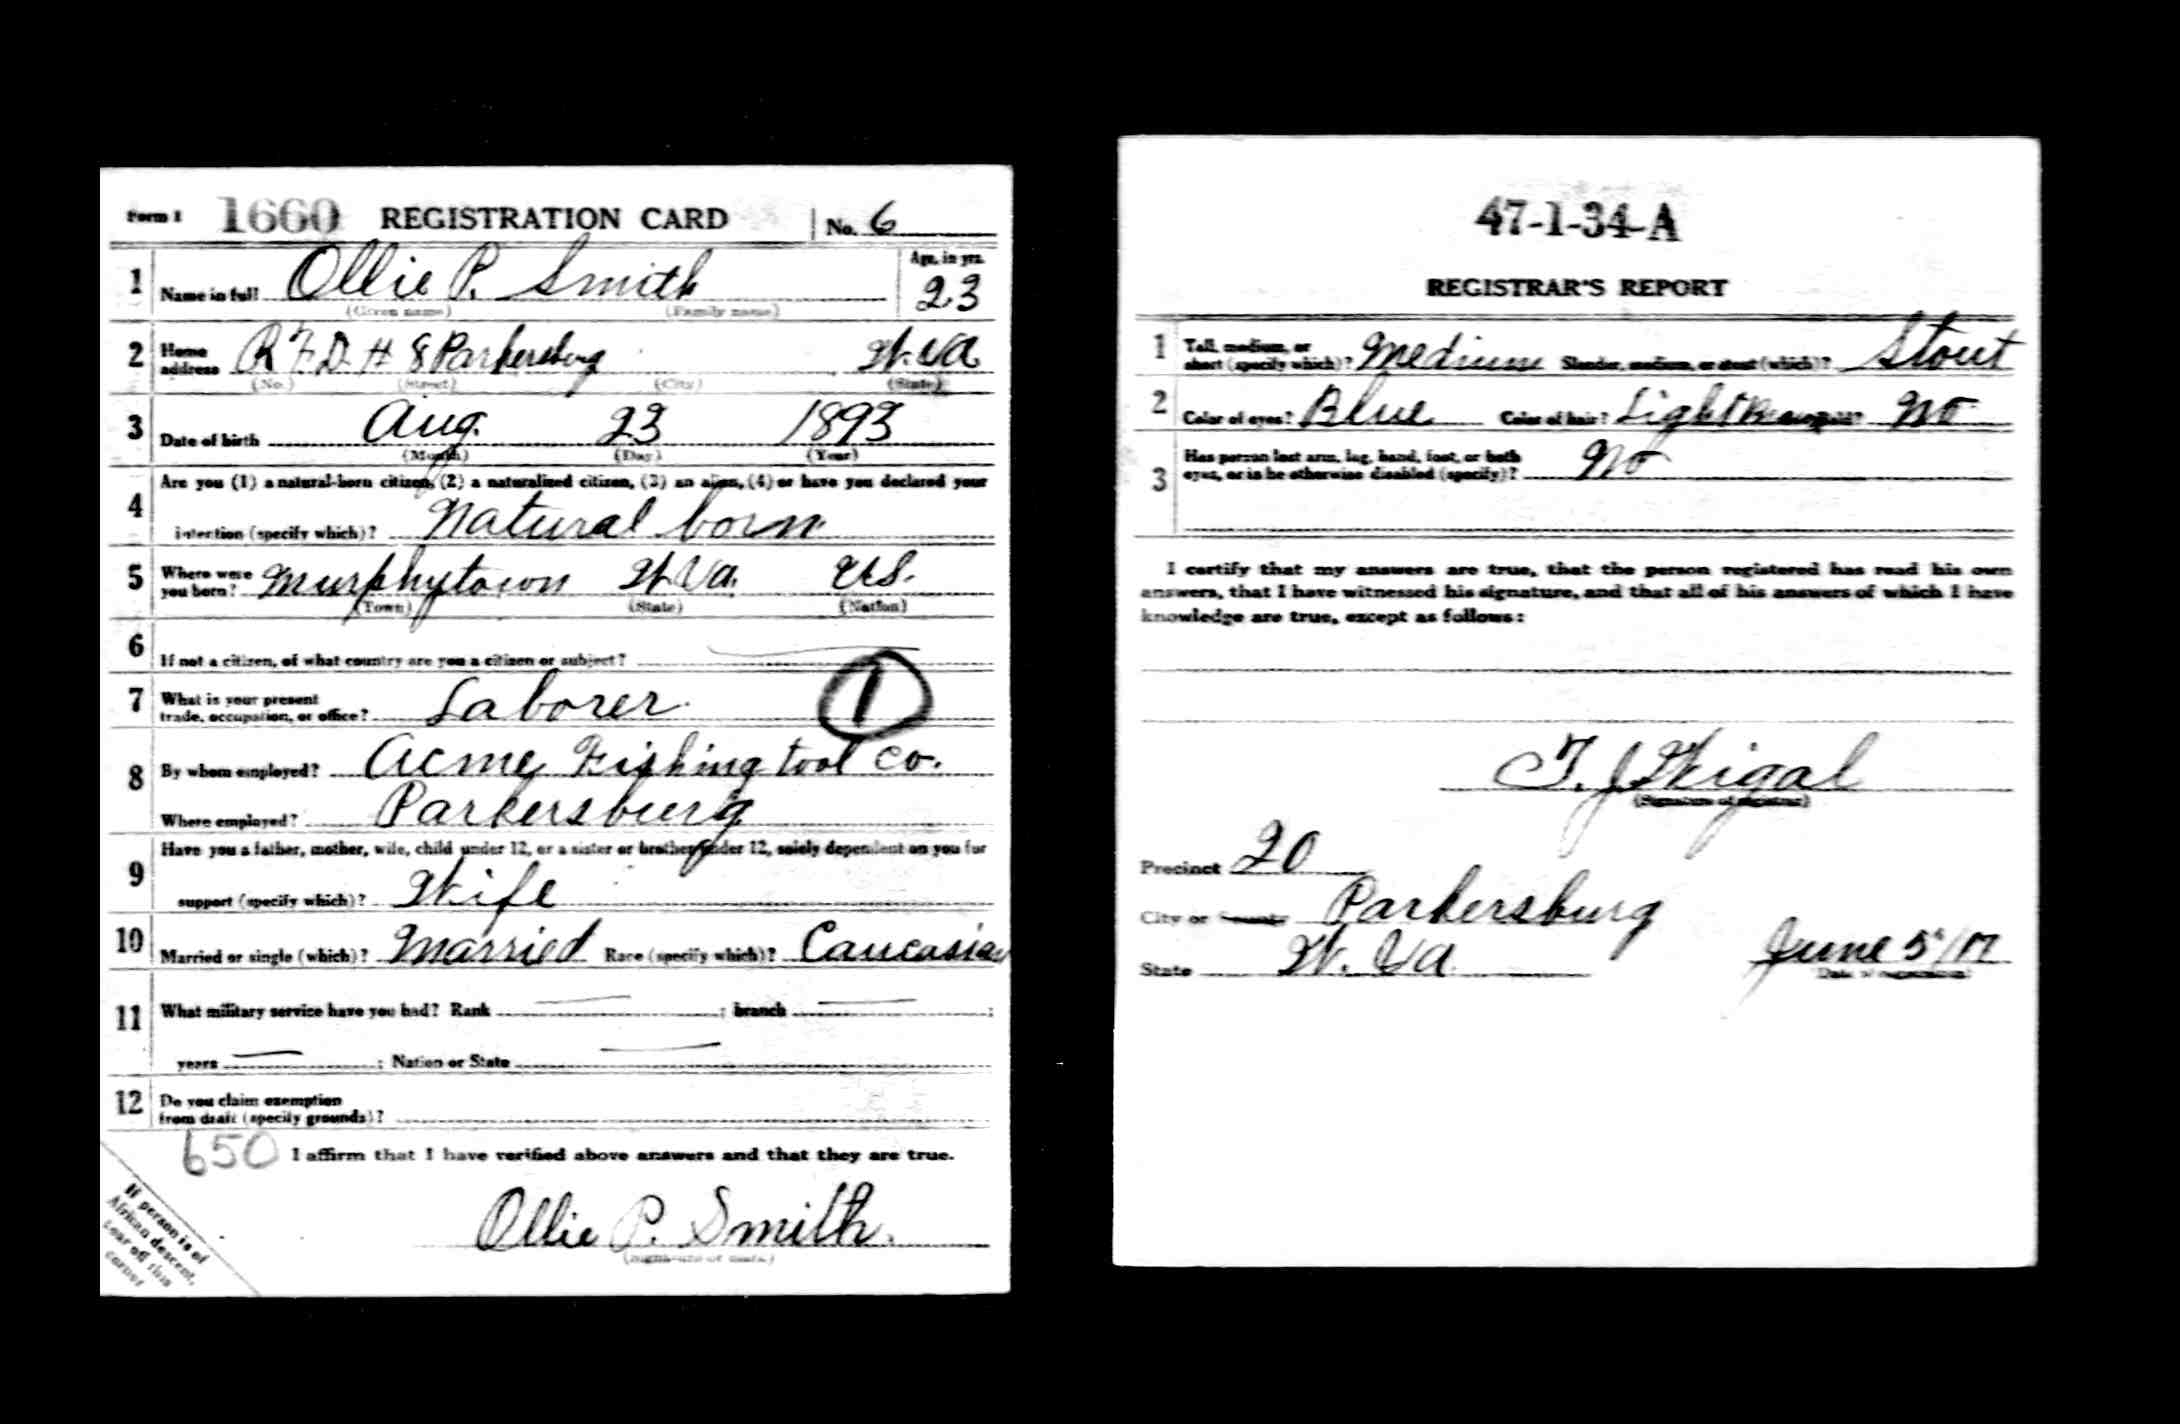 Form 1 1660 REGISTRATION CARD No. 6
1 Name in full Ollie P. Smith Age, in yrs. 23
(Given name) (Family name)
2 Home address R F. D. # 8 Parkersburg W. Va
(No.) (Street) (City) (State)
3 Date of birth Aug. 23 1893
(Month) (Day) (Year)
4 Are you (1) a natural-born citizen, (2) a naturalized citizen, (3) an alien, (4) or have you declared your
intention (specify which)? Natural born
5 Where were you born? Murphytown W. Va. U.S.
(Town) (State) (Nation)
6 If not a citizen, of what country are you a citizen or subject?
7 What is your present trade, occupation, or office? Laborer. 1
8 By whom employed? Acme Fishing tool co.
Where employed? Parkersburg
9 Have you a father, mother, wife, child under 12, or a sister or brother under 12, solely dependent on you for
support (specify which)? Wife
10 Married or single (which)? Married Race (specify which)? Caucasian
11 What military service have you had? Rank ; branch ;
years ; Nation or State
12 Do you claim exemption
from draft (specify grounds)?
650 I affirm that I have verified above answers and that they are true.
Ollie P. Smith.
(Signature or mark.)
If person is of
African descent,
tear off this
corner
47-1-34-A
REGISTRAR'S REPORT
1 Tall, medium, or short (specify which)? Medium Slender, medium, or stout (which)? Stout
2 Color of eyes? Blue Color of hair? Light Brown Bald? No
3 Has person lost arm, leg, hand, foot, or both
eyes, or is he otherwise disabled (specify)? No
I certify that my answers are true, that the person registered has read his own
answers, that I have witnessed his signature, and that all of his answers of which I have
knowledge are true, except as follows:
T. J. Wigal
(Signature of registrar)
Precinct 20
City or County Parkersburg
State W. Va June 5/17
(Date of registration)